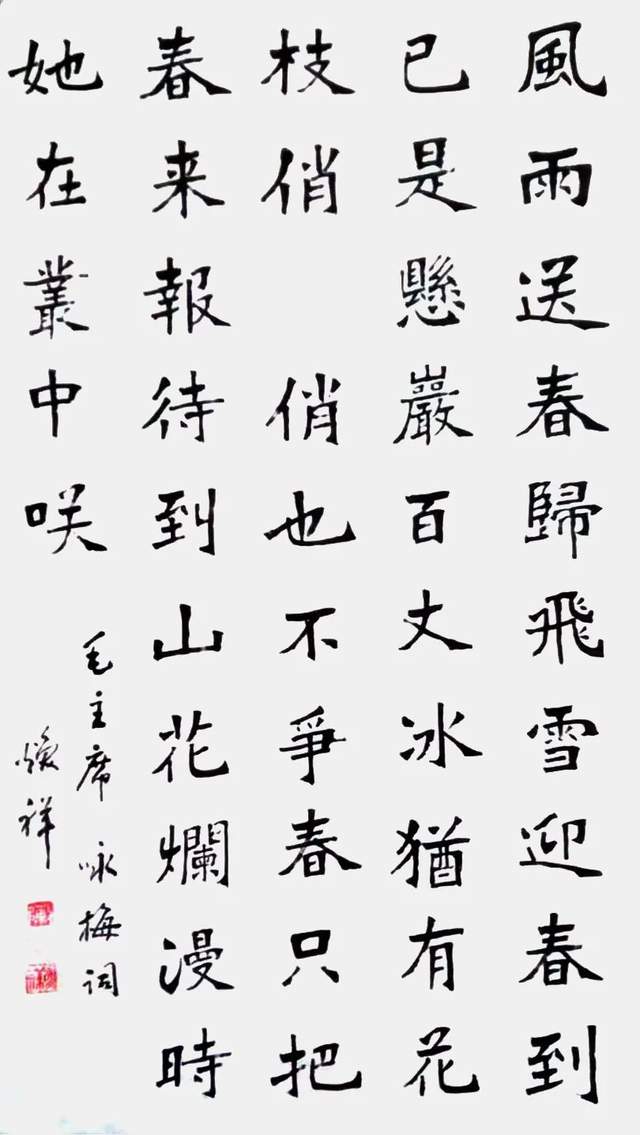 風雨送春歸飛雪迎春到
已是懸巖百丈冰猶有花
枝俏 俏也不爭春只把
春来報待到山花爛漫時
她在叢中咲
毛主席 咏梅詞
煥祥